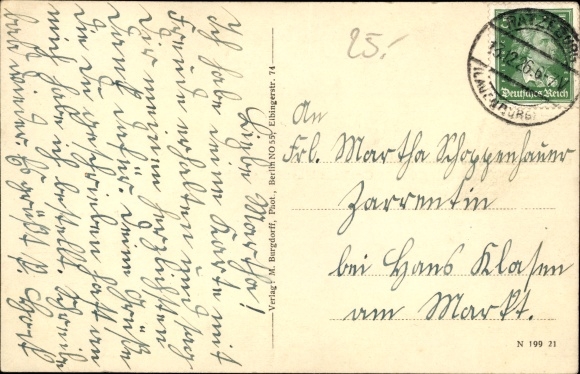 Liebe Martha!
Ich habe deine Karte mit
Freude erhalten und sage
dir meinen herzlichsten
Dank dafür. Deine Grüße
die du geschrieben hattest
mich habe ich bestellt. Schreibe
bald wieder es grüßt
25.-
RATZEBURG
(LAUENBURG)
Deutsches Reich
An
Frl. Martha Schoppenhauer
Zarrentin
bei Hans Klasen
am Markt.
Verlag: M. Burgdorff, Phot., Berlin NO 55, Elbingerstr. 74
N 199 21